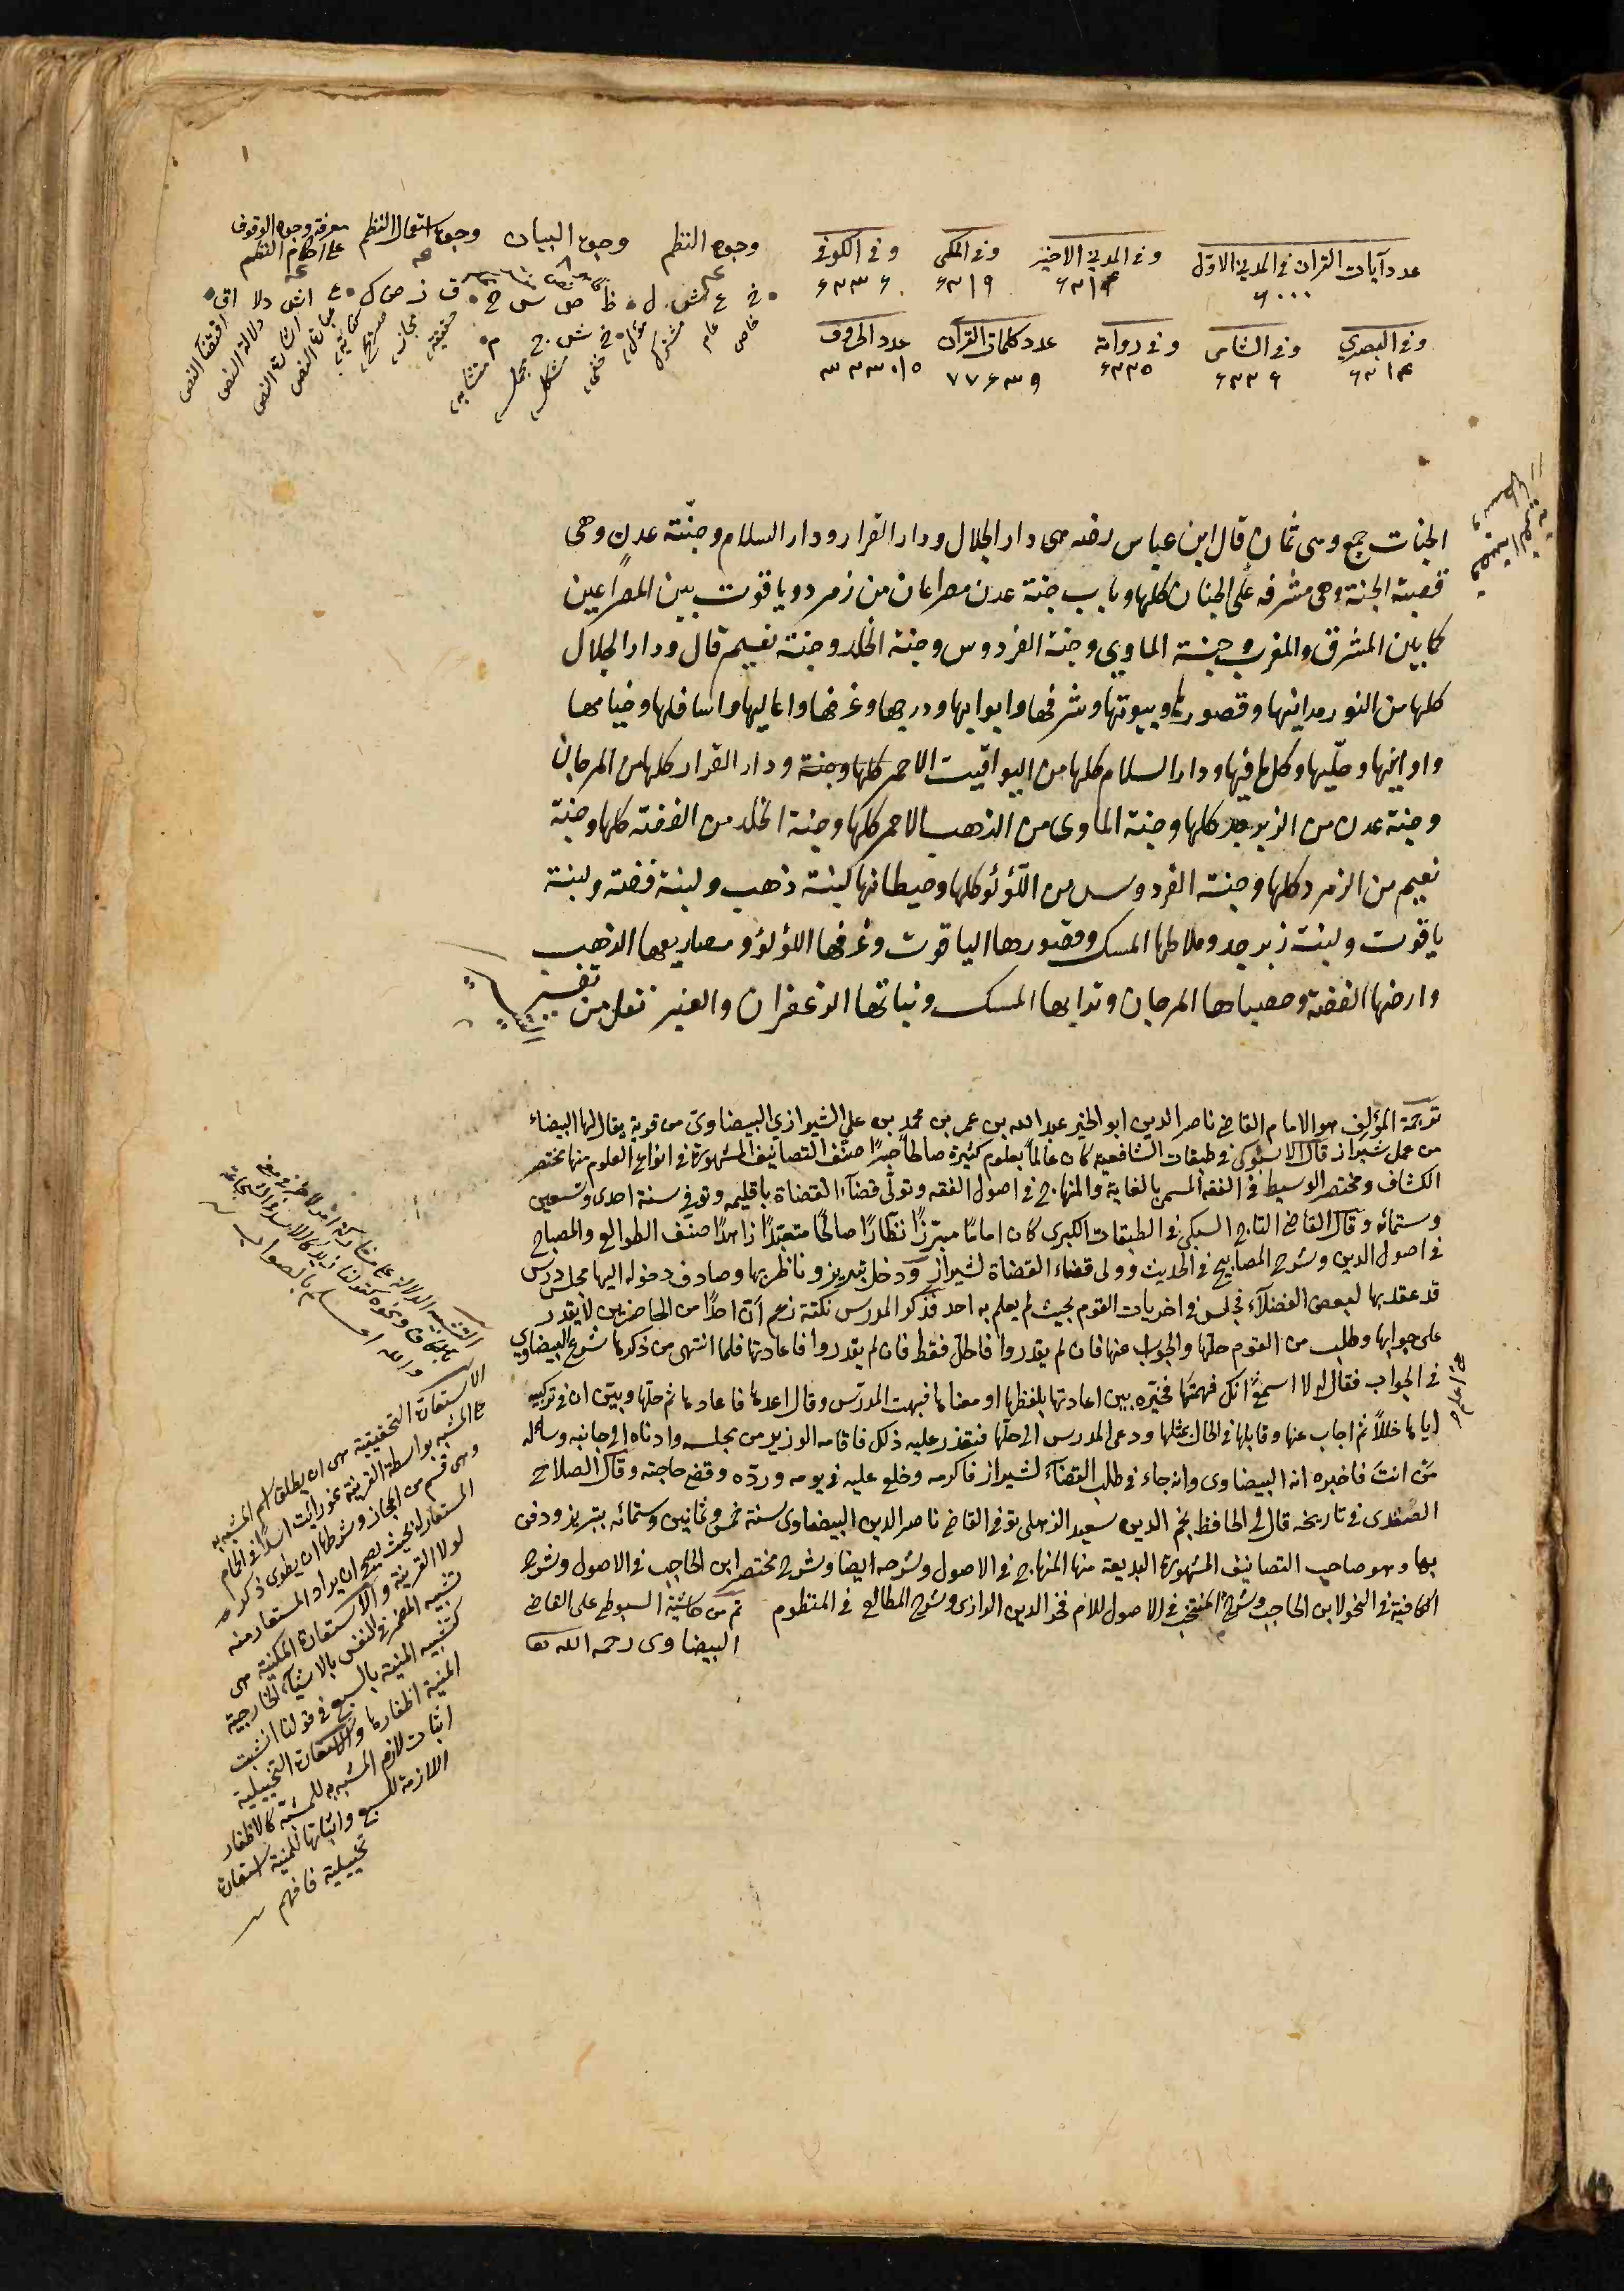 عدد آيات القران في المدني الاول وفي المدني الاخير وفي المكي وفي الكوفي
٦٠٠٠ ٦٢١٤ ٦٢١٩ ٦٢٣٦
وفي البصري وفي الشامى وفي رواية عدد كلمات القرآن عدد الحروف
٦٢١٤ ٦٢٢٦ ٦٢٢٥ ٧٧٤٣٩
وجوه النظم وجوه البيان وجوه استعمال النظم معرفة وجوه الوقوف
على احكام النظم
خ ع ش ل ظ ص س ح ق ز ص ك ع اش دلا اق
خ ش ج م
خاص عام مشترك مؤل خفى مشكل مجمل متشابه حقيقة مجاز صريح كناية عبارة النص اشارة النص دلالة النص اقتضآ النص
الجنات جمع وهى ثمان قال ابن عباس رضه هى دار الجلال ودار القرار ودار السلام وجنّة عدن وهى
قصبة الجنة وهى مشرفه على الجنان كلها وباب جنة عدن مصراعان من زمرد وياقوت بين المصراعين
كما بين المشرق والمغرب وجنة الماوى وجنة الفردوس وجنة الخلد وجنة نعيم قال ودار الجلال
كلها من النور مدائنها وقصورها وبيوتها وشرفها وابوابها ودرجها وغرفها واعاليها واسافلها وخيامها
واوانيها وحليها وكل ما فيها ودار السلام كلها من اليواقيت الاحمر كلها وجنة ودار القرار كلها من المرجان
وجنة عدن من الزبرجد كلها وجنة الماوى من الذهب الاحمر كلها وجنة الخلد من الفضة كلها وجنة
نعيم من الزمرد كلها وجنة الفردوس من اللؤلؤ كلها وحيطانها لبنة ذهب ولبنة فضة ولبنة
ياقوت ولبنة زبرجد وملاطها المسك وقصورها الياقوت وغرفها اللؤلؤ ومصاريعها الذهب
وارضها الفضة وحصباها المرجان وترابها المسك ونباتها الزعفران والعنبر نقل من تفسير
ترجمة المؤلف هو الامام القاضى ناصر الدين ابو الخير عبد الله بن عمر بن محمد بن على الشيرازي البيضاوى من قرية يقال لها البيضاء
من عمل شيراز قال الاسنوى في طبقات الشافعيه كان عالما بعلوم كثيرة صالحا خيرا صنّف التصانيف المشهورة في انواع العلوم منها مختصر
الكشاف ومختصر الوسيط في الفقه المسمى بالغاية والمنهاج في اصول الفقه وتولّى قضآء القضاة باقليمه وتوفي سنة احدى وتسعين
وستمائه وقال القاضى التاج السبكى في الطبقات الكبرى كان اماما مبرّزًا نظّارًا صالحًا متعبّدًا زاهدًا صنف الطوالع والمصباح
في اصول الدين وشرح المصابيح في الحديث وولى قضاء القضاة لشيراز ودخل تبريز وناظر بها وصادف دخوله اليها مجلس درس
قد عقد بها لبعض الفضلآء فجلس في اخريات القوم بحيث لم يعلم به احد فذكر المدرس نكتة زعم ان احدًا من الحاضرين لا يقدر
على جوابها وطلب من القوم حلّها والجواب عنها فان لم يقدروا فالحلّ فقط فان لم يقدروا فاعادتها فلما انتهى من ذكرها شرع البيضاوي
في الجواب فقال له لا اسمع انك فهمتها فخيّره بين اعادتها بلفظها او معناها فبهت المدرّس وقال اعدها فاعادها ثم حلّها وبيّن ان في تركيبه
اياها خللًا ثم اجاب عنها وقابلها في الحال بمثلها ودعى المدرس الى حلّها فتعذر عليه ذلك فاقامه الوزير من مجلسه وادناه الى جانبه وساله
من انت فاخبره انه البيضاوى وانه جاء في طلب القضآء لشيراز فاكرمه وخلع عليه في يومه وردّه وقضى حاجته وقال الصلاح
الصفدى في تاريخه قال لى الحافظ نجم الدين سعيد الزهلى توفى القاضى ناصر الدين البيضاوى سنة خمس وثمانين وستمائه بتبريز ودفن
بها وهو صاحب التصانيف المشهورة البديعة منها المنهاج في الاصول وشرحه ايضا وشرح مختصر ابن الحاجب في الاصول وشرح
الكافية في النحو لابن الحاجب وشرح المنتخب في الاصول للامام فخر الدين الرازى وشرح المطالع في المنطق تم من حاشية السيوطى على القاضى
البيضاوى رحمه الله تعا
الاستعارة التحقيقية هى ان يطلق اسم المشبه به
على المشبه بواسطة القرينة نحو رأيت اسدًا في الحمام
وهى قسم من المجاز وشرطها ان يطوى ذكر
المستعار له بحيث يصح ان يراد المستعار منه
لولا القرينة والاستعارة المكنية هى
تشبيه المضمر في النفس بالاشيآء الخارجية
كتشبيه المنية بالسبع في قولنا انشبت
المنية اظفارها والاستعارة التخييلية
اثبات لازم المشبه به للمشبه كالاظفار
اللازمة للسبع واثباتها للمنية استعارة
تخييلية فافهم